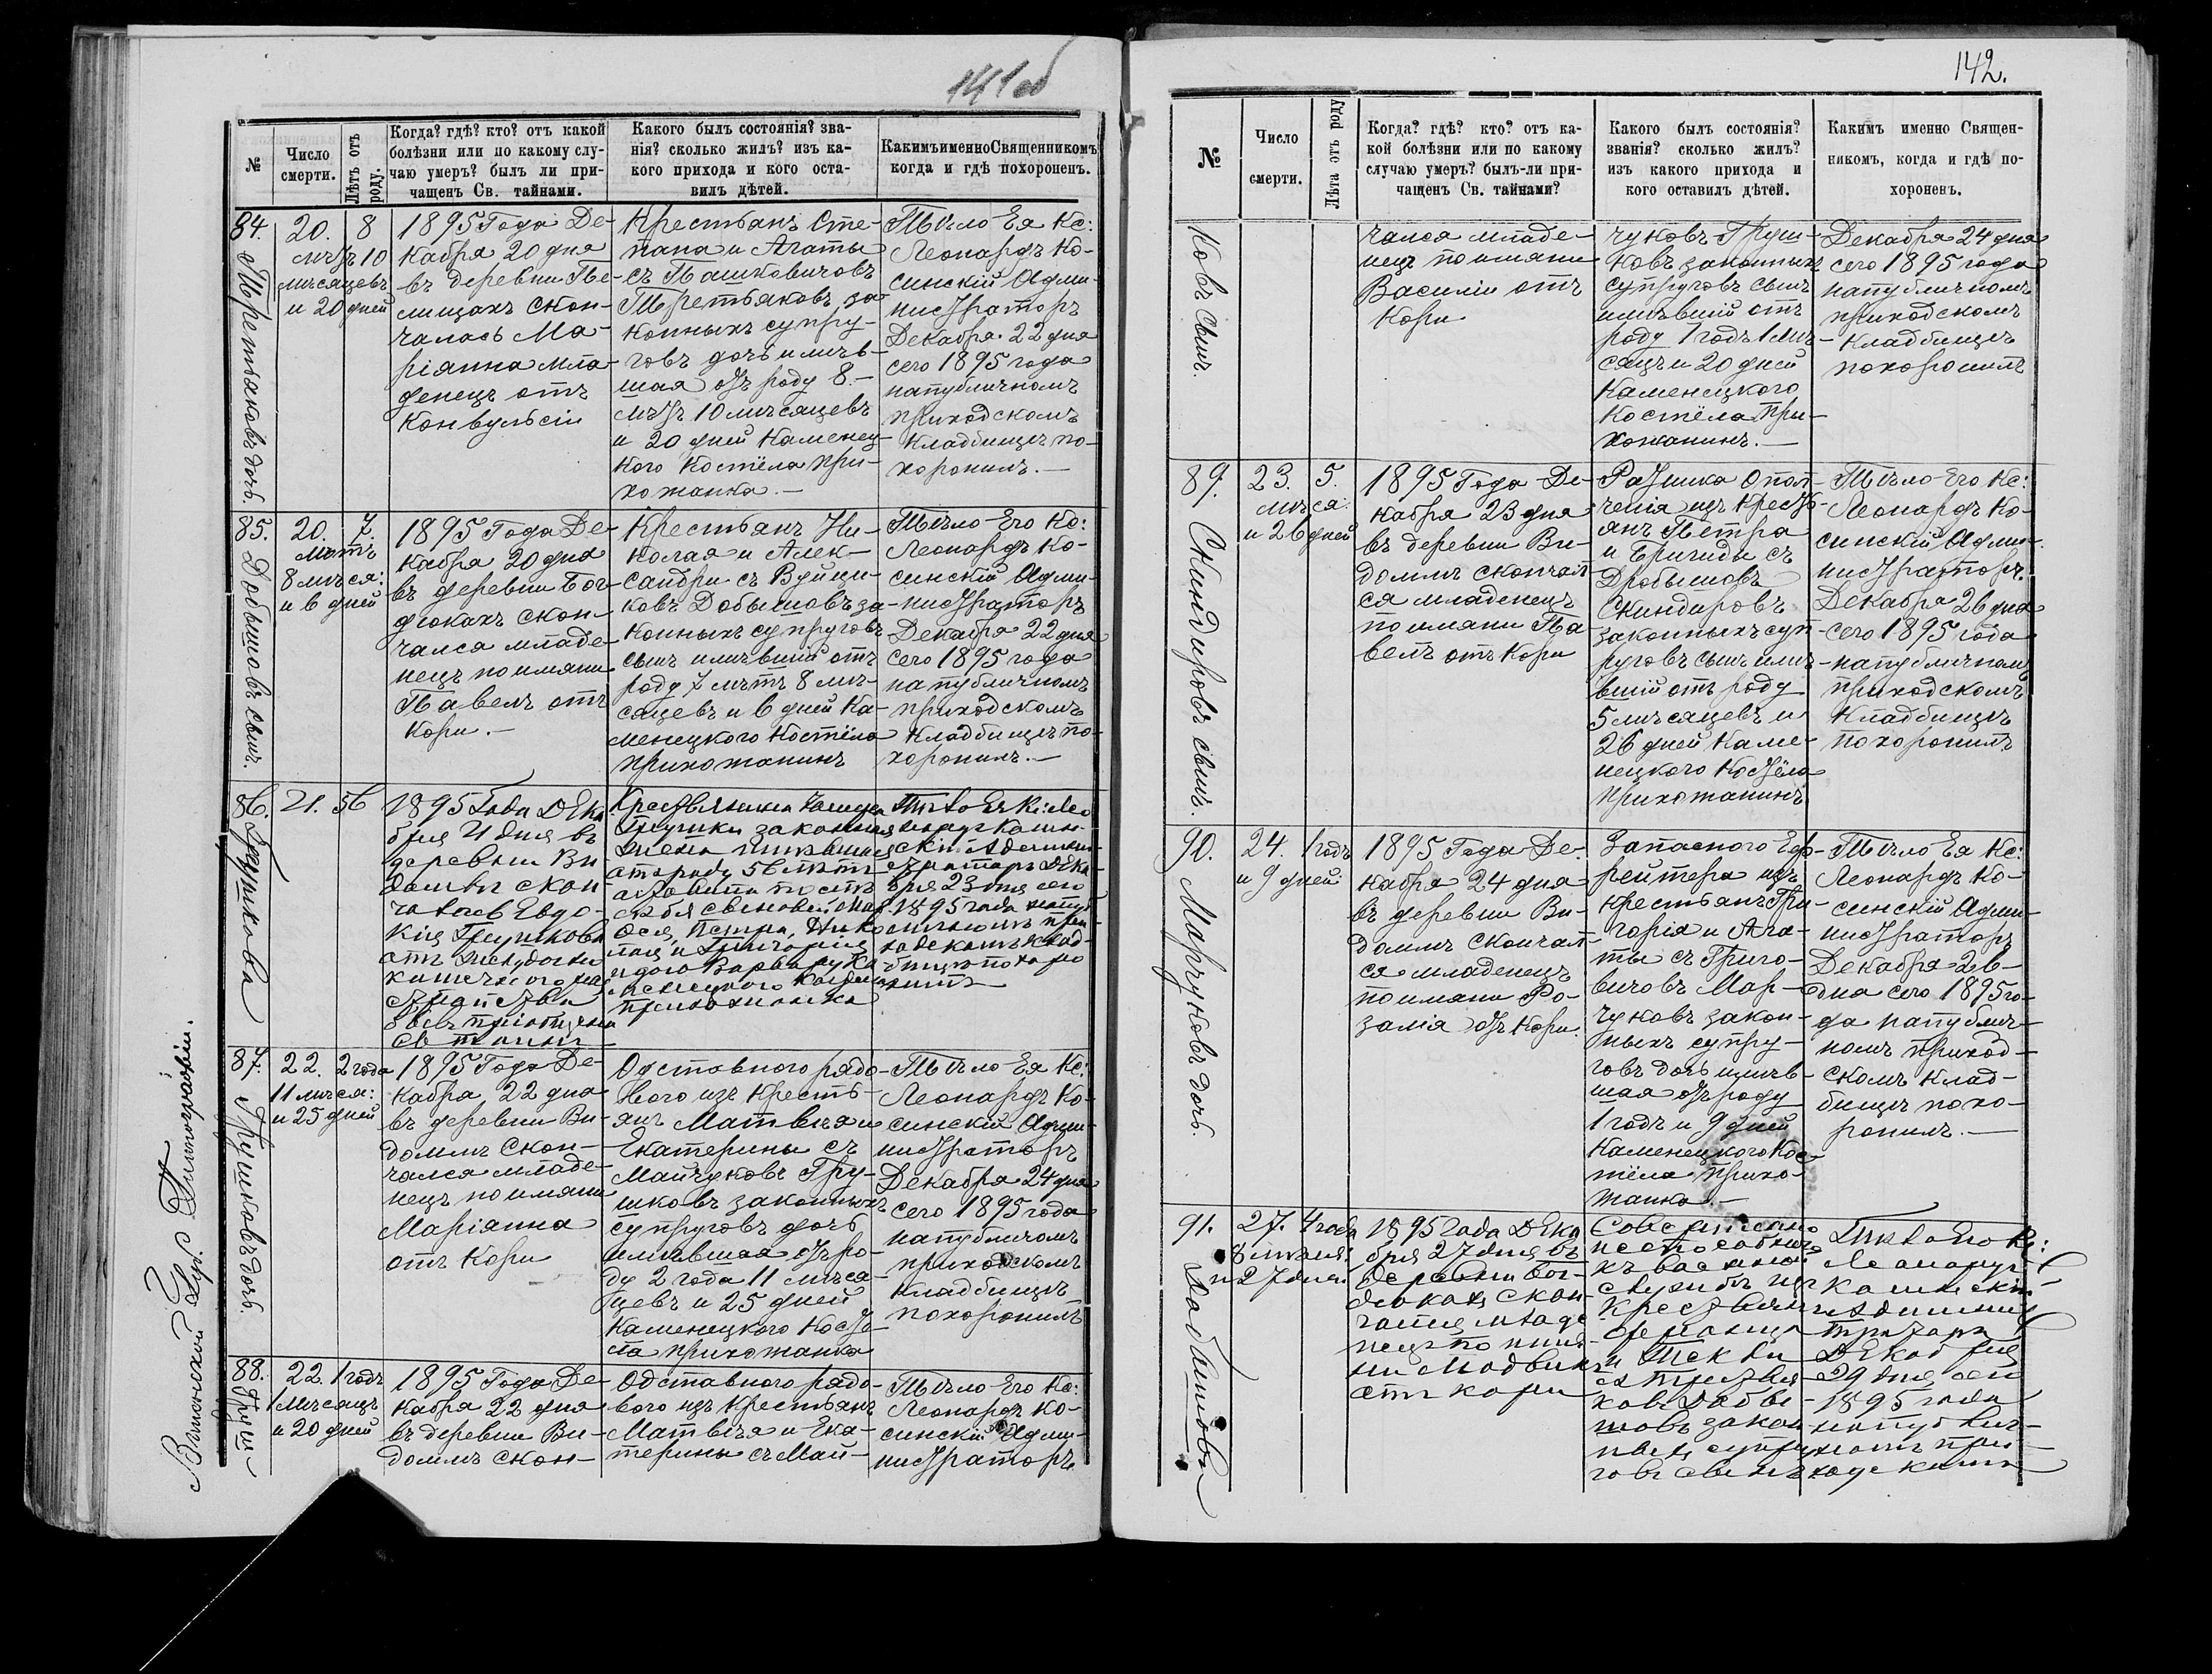 141об
№
Число смерти.
Лѣтъ отъ роду.
Когда? гдѣ? кто? отъ какой
болѣзни или по какому слу-
чаю умеръ? былъ ли при-
чащенъ Св. тайнами.
Какого былъ состоянія? зва-
нія? сколько жилъ? изъ ка-
кого прихода и кого оста-
вилъ дѣтей.
КакимъименноСвященникомъ
когда и гдѣ похороненъ.
84.
Третьяковъ дочь.
20. 8
лѣтъ 10
мѣсяцевъ
и 20 дней
1895 Года Де-
кабря 20 дня
въ деревни Пе-
лищахъ скон-
чалась Ма-
ріянна мла-
денецъ отъ
Конвульсіи
Крестьянъ Сте-
пана и Агаты
съ Пашкевичовъ
Третьяковъ за
конныхъ супру-
говъ дочь имѣв-
шая отъ роду 8.-
лѣтъ 10 мѣсяцевъ
и 20 дней Каменец-
кого Костёла при-
хожанка.-
Тѣло Ея Кс:
Леонардъ Ко-
синскій Адми-
нистраторъ
Декабря 22 дня
сего 1895 года
напубличномъ
приходскомъ
Кладбищѣ по-
хоронилъ.-
85.
Добышовъ сынъ.
20. 7.
лѣтъ
8 мѣся:
и 6 дней
1895 Года Де-
кабря 20 дня
въ деревни Бог-
дюкахъ скон-
чался младе-
нецъ поимяни
Павелъ отъ
Кори.-
Крестьянъ Ни-
колая и Алек-
сандри съ
ковъ Добышовъ за-
конныхъ супруговъ
сынъ имѣвшій отъ
роду 7 лѣтъ 8 мѣ-
сяцевъ и 6 дней Ка-
менецкого Костёла
прихожанинъ
Тѣло Его Кс:
Леонардъ Ко-
синскій Адми-
нистраторъ
Декабря 22 дня
сего 1895 года
на публичномъ
приходскомъ
Кладбищѣ по-
хоронилъ.-
86.
Грушкова
21. 56
1895 Года Дека
бря 21 дня въ
деревни Ви-
домлѣ скон
чалась Евдо-
кія Грушкова
отъ
св
Грушки законная
жена имѣвшая
отъ роду 56 лѣтъ
оставила послѣ
себя сыновей
Петра,
и Григорія
и дочь Варвару Ка
менецкого Костёла
прихожанка
Тѣло Ея Кс: Лео
нардъ Косин-
скій Админи-
страторъ Дека
бря 23 дня сего
1895 года напуб
личномъ при
ходскомъ клад-
бищѣ похоро
нилъ
87.
Грушковъ дочь.
22. 2 года
11 мѣся:
и 25 дней
1895 Года Де-
кабря 22 дня
въ деревни Ви-
домлѣ скон-
чался младе-
нецъ поимяни
Маріянна
отъ Кори
Одставного рядо-
вого изъ Кресть-
янъ Матвѣя и
Екатерины съ
Майчуковъ Гру-
шковъ законныхъ
супруговъ дочь
имѣвшая отъ ро-
ду 2 года 11 мѣся-
цевъ и 25 дней
Каменецкого Костё-
ла прихожанка
Тѣло Ея Кс:
Леонардъ Ко-
синскій Адми-
нистраторъ
Декабря 24 дня
сего 1895 года
напубличомъ
приходскомъ
Кладбищѣ
похоронилъ
88.
Груш
22. 1 годъ
1 мѣсяцъ
и 20 дней
1895 Года Де-
кабря 22 дня
въ деревни Ви-
домлѣ скон-
Одставного рядо-
вого изъ Крестьянъ
Матвѣя и Ека-
терины съ Май-
Тѣло Его Кс:
Леонардъ Ко-
синскій Адми-
нистраторъ
Виленской Губ. Типографіи.
142.
№
Число
смерти.
Лѣта отъ роду
Когда? гдѣ? кто? отъ ка-
кой болѣзни или по какому
случаю умеръ? былъ-ли при-
чащенъ Св. тайнами?
Какого былъ состоянія?
званія? сколько жилъ?
изъ какого прихода и
кого оставилъ дѣтей.
Какимъ именно Священ-
никомъ, когда и гдѣ по-
хороненъ.
ковъ сынъ.
чался младе-
нецъ поимяни
Василіи отъ
Кори
чуковъ Груш-
ковъ законныхъ
супруговъ сынъ
имѣвшій отъ
роду 1 годъ 1 мѣ-
сяцъ и 20 дней
Каменецкого
Костёла при-
хожанинъ.-
Декабря 24 дня
сего 1895 года
напубличномъ
приходскомъ
Кладбищѣ
похоронилъ
89.
Скиндировъ сынъ.
23. 5.
мѣся:
и 26 дней
1895 Года Де-
кабря 23 дня
въ деревни Ви-
домлѣ скончал
ся младенецъ
поимяни Па
велъ отъ Кори
Ратника Опол-
ченія изъ Кресть-
янъ Петра
и Бригиды съ
Дробышовъ
Скиндировъ
законныхъ суп-
руговъ сынъ имѣ-
вшій отъ роду
5 мѣсяцевъ и
26 дней Каме-
нецкого Костёла
прихожанинъ
Тѣло Его Кс:
Леонардъ Ко-
синскій Адми-
нистраторъ.
Декабря 26 дня
сего 1895 года
напубличномъ
приходскомъ
Кладбищѣ
похоронилъ
90.
Марчуковъ дочь.
24. 1 годъ
и 9 дней
1895 Года Де-
кабря 24 дня
въ деревни Ви-
домлѣ скончал-
ся младенецъ
поимяни Ро-
залія отъ Кори.
Запасного Еф-
рейтера изъ
крестьянъ Гри-
горія и Ага-
ты съ Григо-
вичовъ Мар-
чуковъ закон-
ныхъ супру-
говъ дочь имѣв-
шая отъ роду
1 годъ и 9 дней
Каменецкого Кос-
тёла прихо-
жанка.-
Тѣло Ея Кс:
Леонардъ Ко-
синскій Адми-
нистраторъ
Декабря 26-
дня сего 1895 го-
да напублич-
номъ приход-
скомъ Клад-
бищѣ похо-
ронилъ.-
91.
27. 4 года
и 27 дней
1895 Года Дека
бря 27 дня въ
деревни Бог-
дюкахъ скон-
чался младе
нецъ поимя-
ни
отъ кори
неспособнаго
къ военной
службѣ изъ
крестьянъ
и Текли
ковъ Добы-
шовъ закон-
ныхъ супру
говъ сынъ
Тѣло Его Кс:
Леонардъ
Косинскій
Админис
траторъ
Декабря
29 дня сего
1895 года
напублич-
номъ при-
ходскомъ